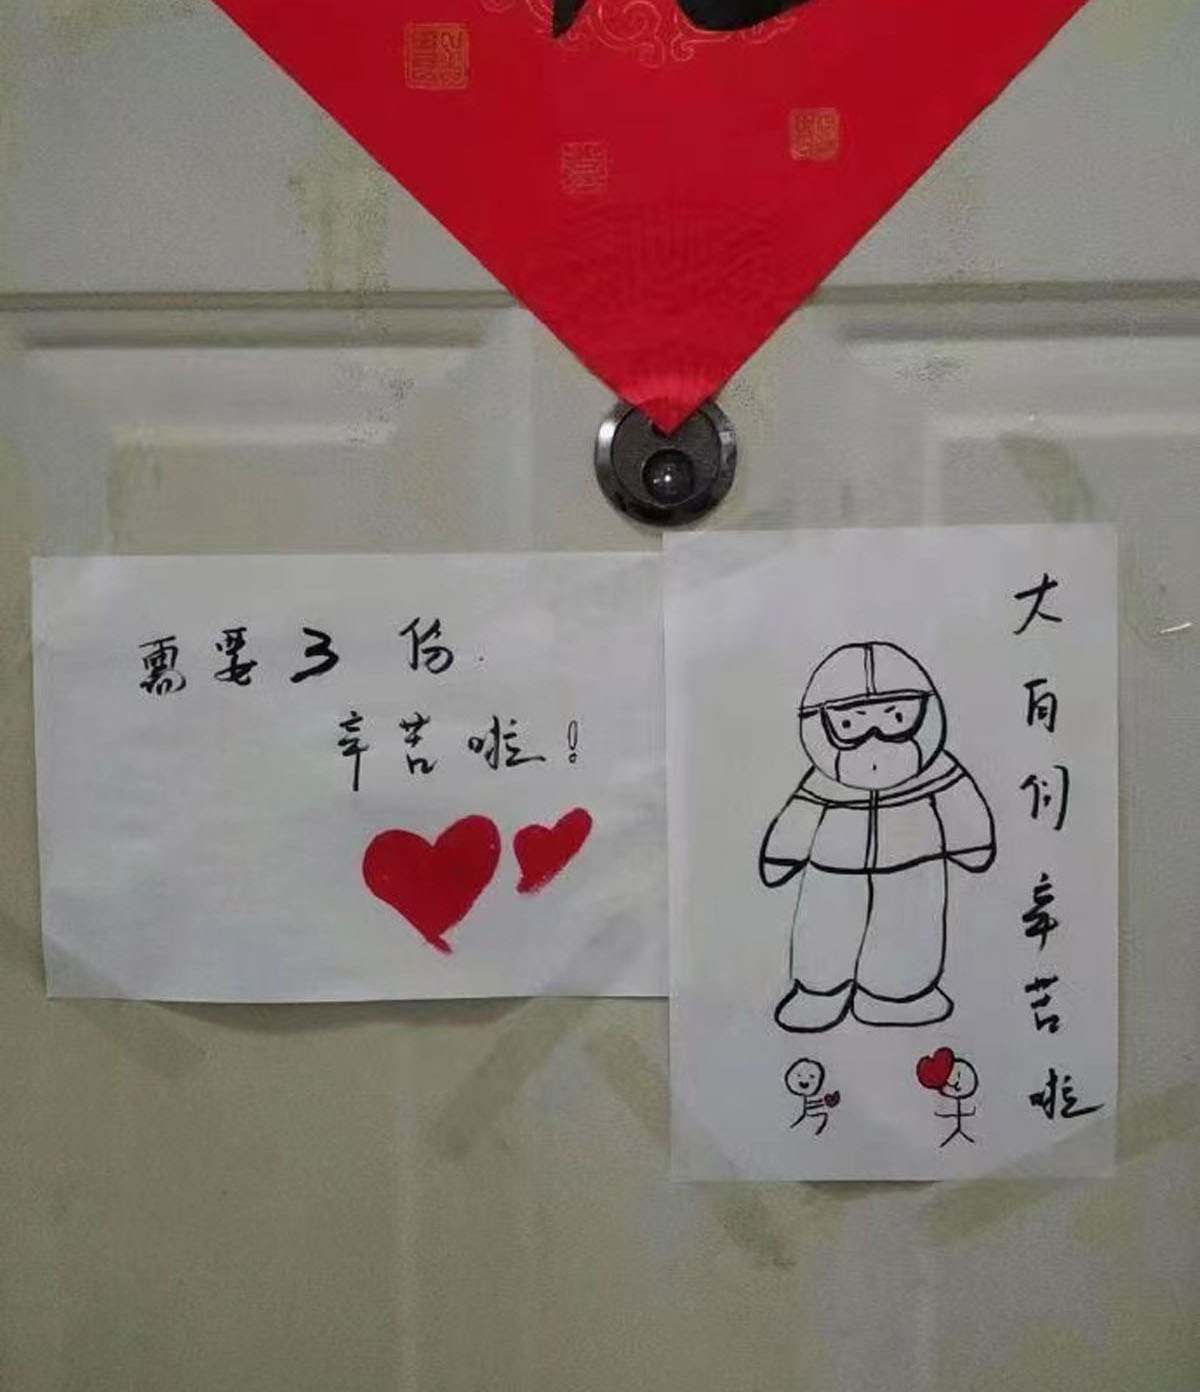 需要3份
辛苦啦!
大白们辛苦啦